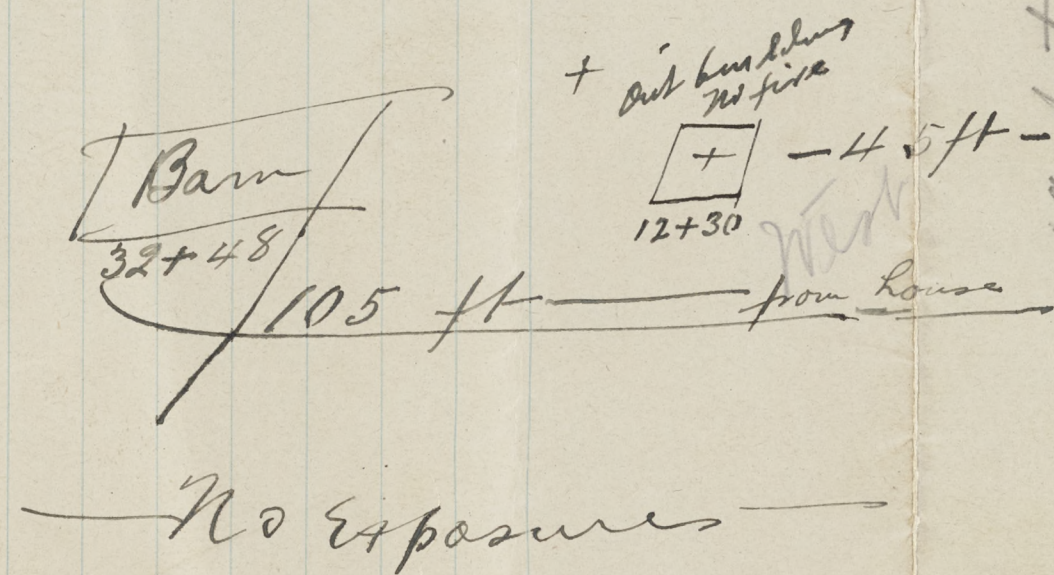 + out building
no fire
Barn
+ — 45 ft —
12+30
West
32+48
105 ft — from house
— No Exposures —